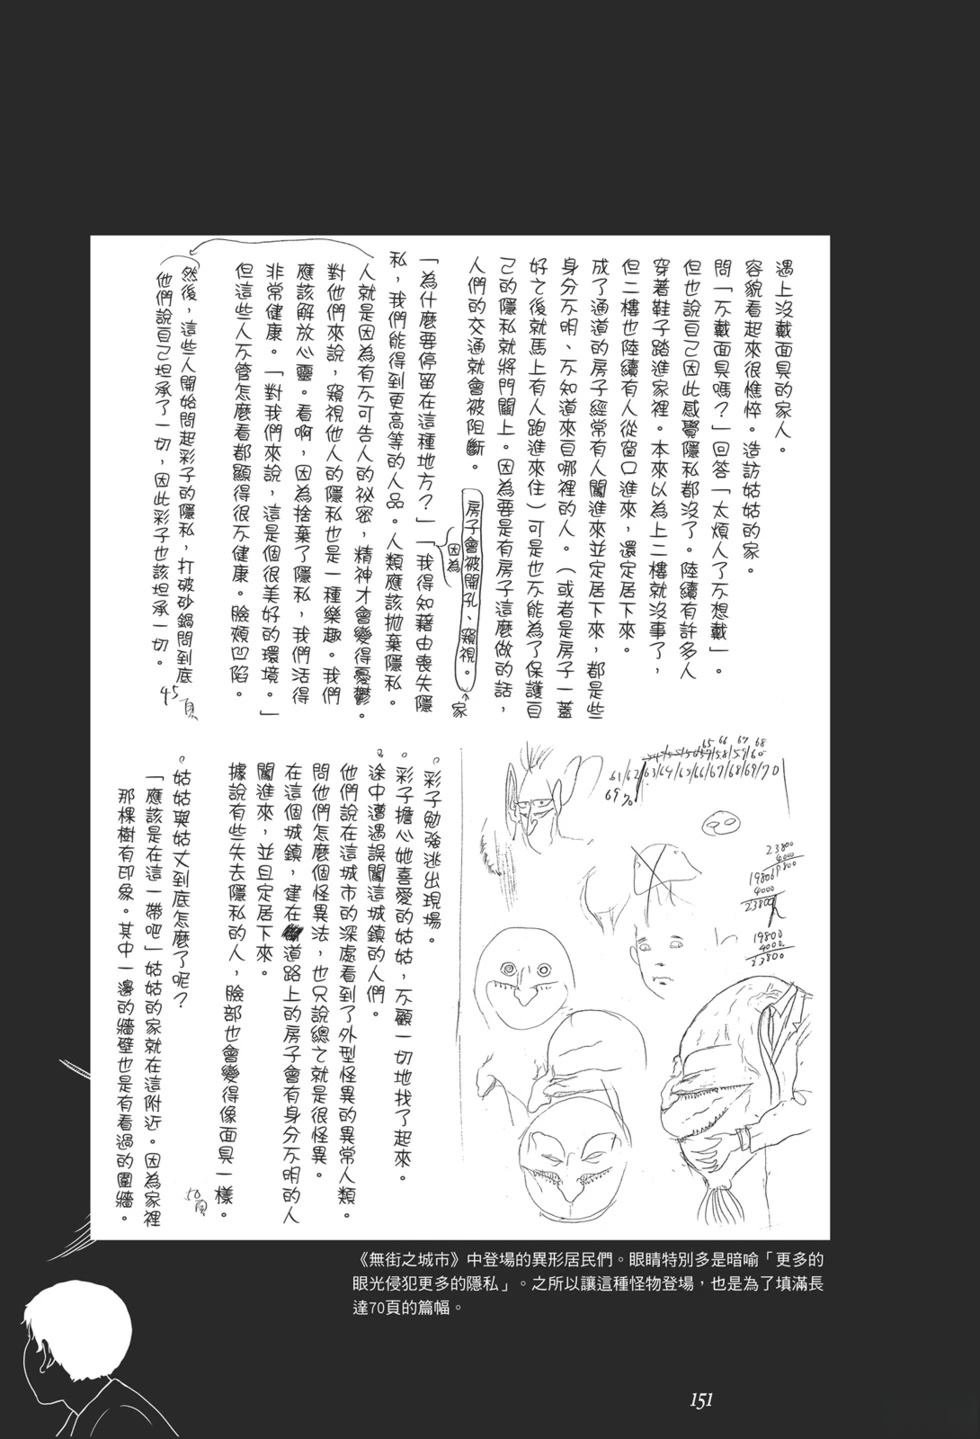 遇上沒戴面具的家人。
容貌看起來很憔悴。造訪姑姑的家。
問「不戴面具嗎？」回答「太煩人了不想戴」。
但也說自己因此感覺隱私都沒了。陸續有許多人
穿著鞋子踏進家裡。本來以為上二樓就沒事了，
但二樓也陸續有人從窗口進來，還定居下來。
成了通道的房子經常有人闖進來並定居下來，都是些
身分不明、不知道來自哪裡的人。（或者是房子一蓋
好之後就馬上有人跑進來住）可是也不能為了保護自
己的隱私就將門關上。因為要是有房子這麼做的話，
人們的交通就會被阻斷。
房子會被開孔、窺視。
↑家
因為
「為什麼要停留在這種地方？」「我得知藉由喪失隱
私，我們能得到更高等的人品。人類應該拋棄隱私。
人就是因為有不可告人的祕密，精神才會變得憂鬱。
對他們來說，窺視他人的隱私也是一種樂趣。我們
應該解放心靈。看啊，因為捨棄了隱私，我們活得
非常健康。「對我們來說，這是個很美好的環境。」
但這些人不管怎麼看都顯得很不健康。臉頰凹陷。
然後，這些人開始問起彩子的隱私，打破砂鍋問到底
他們說自己坦承了一切，因此彩子也該坦承一切。
45頁
65 66 67 68
61/62/63/64/65/66/67/68/69/70
69 70
23800
4000
19800
4000
23800
19800
4000
23800
。彩子勉強逃出現場。
。彩子擔心她喜愛的姑姑，不顧一切地找了起來。
。途中遭遇誤闖這城鎮的人們。
他們說在這城市的深處看到了外型怪異的異常人類。
問他們怎麼個怪異法，也只說總之就是很怪異。
在這個城鎮，建在道路上的房子會有身分不明的人
闖進來，並且定居下來。
據說有些失去隱私的人，臉部也會變得像面具一樣。
50頁
。姑姑與姑丈到底怎麼了呢？
「應該是在這一帶吧」姑姑的家就在這附近。因為家裡
那棵樹有印象。其中一邊的牆壁也是有看過的圍牆。
《無街之城市》中登場的異形居民們。眼睛特別多是暗喻「更多的
眼光侵犯更多的隱私」。之所以讓這種怪物登場，也是為了填滿長
達70頁的篇幅。
151